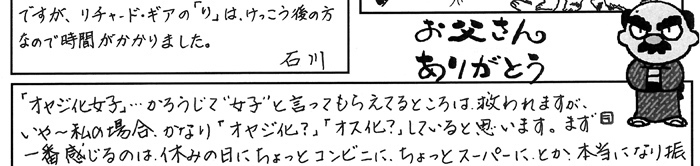 ですが、リチャード・ギアの「り」は、けっこう後の方
なので時間がかかりました。
石川
お父さん
ありがとう
「オヤジ化女子」…かろうじて“女子”と言ってもらえてるところは、救われますが、
いや〜私の場合、かなり「オヤジ化？」「オス化？」していると思います。まず
一番感じるのは、休みの日にちょっとコンビニに、ちょっとスーパーに、とか、本当になり振